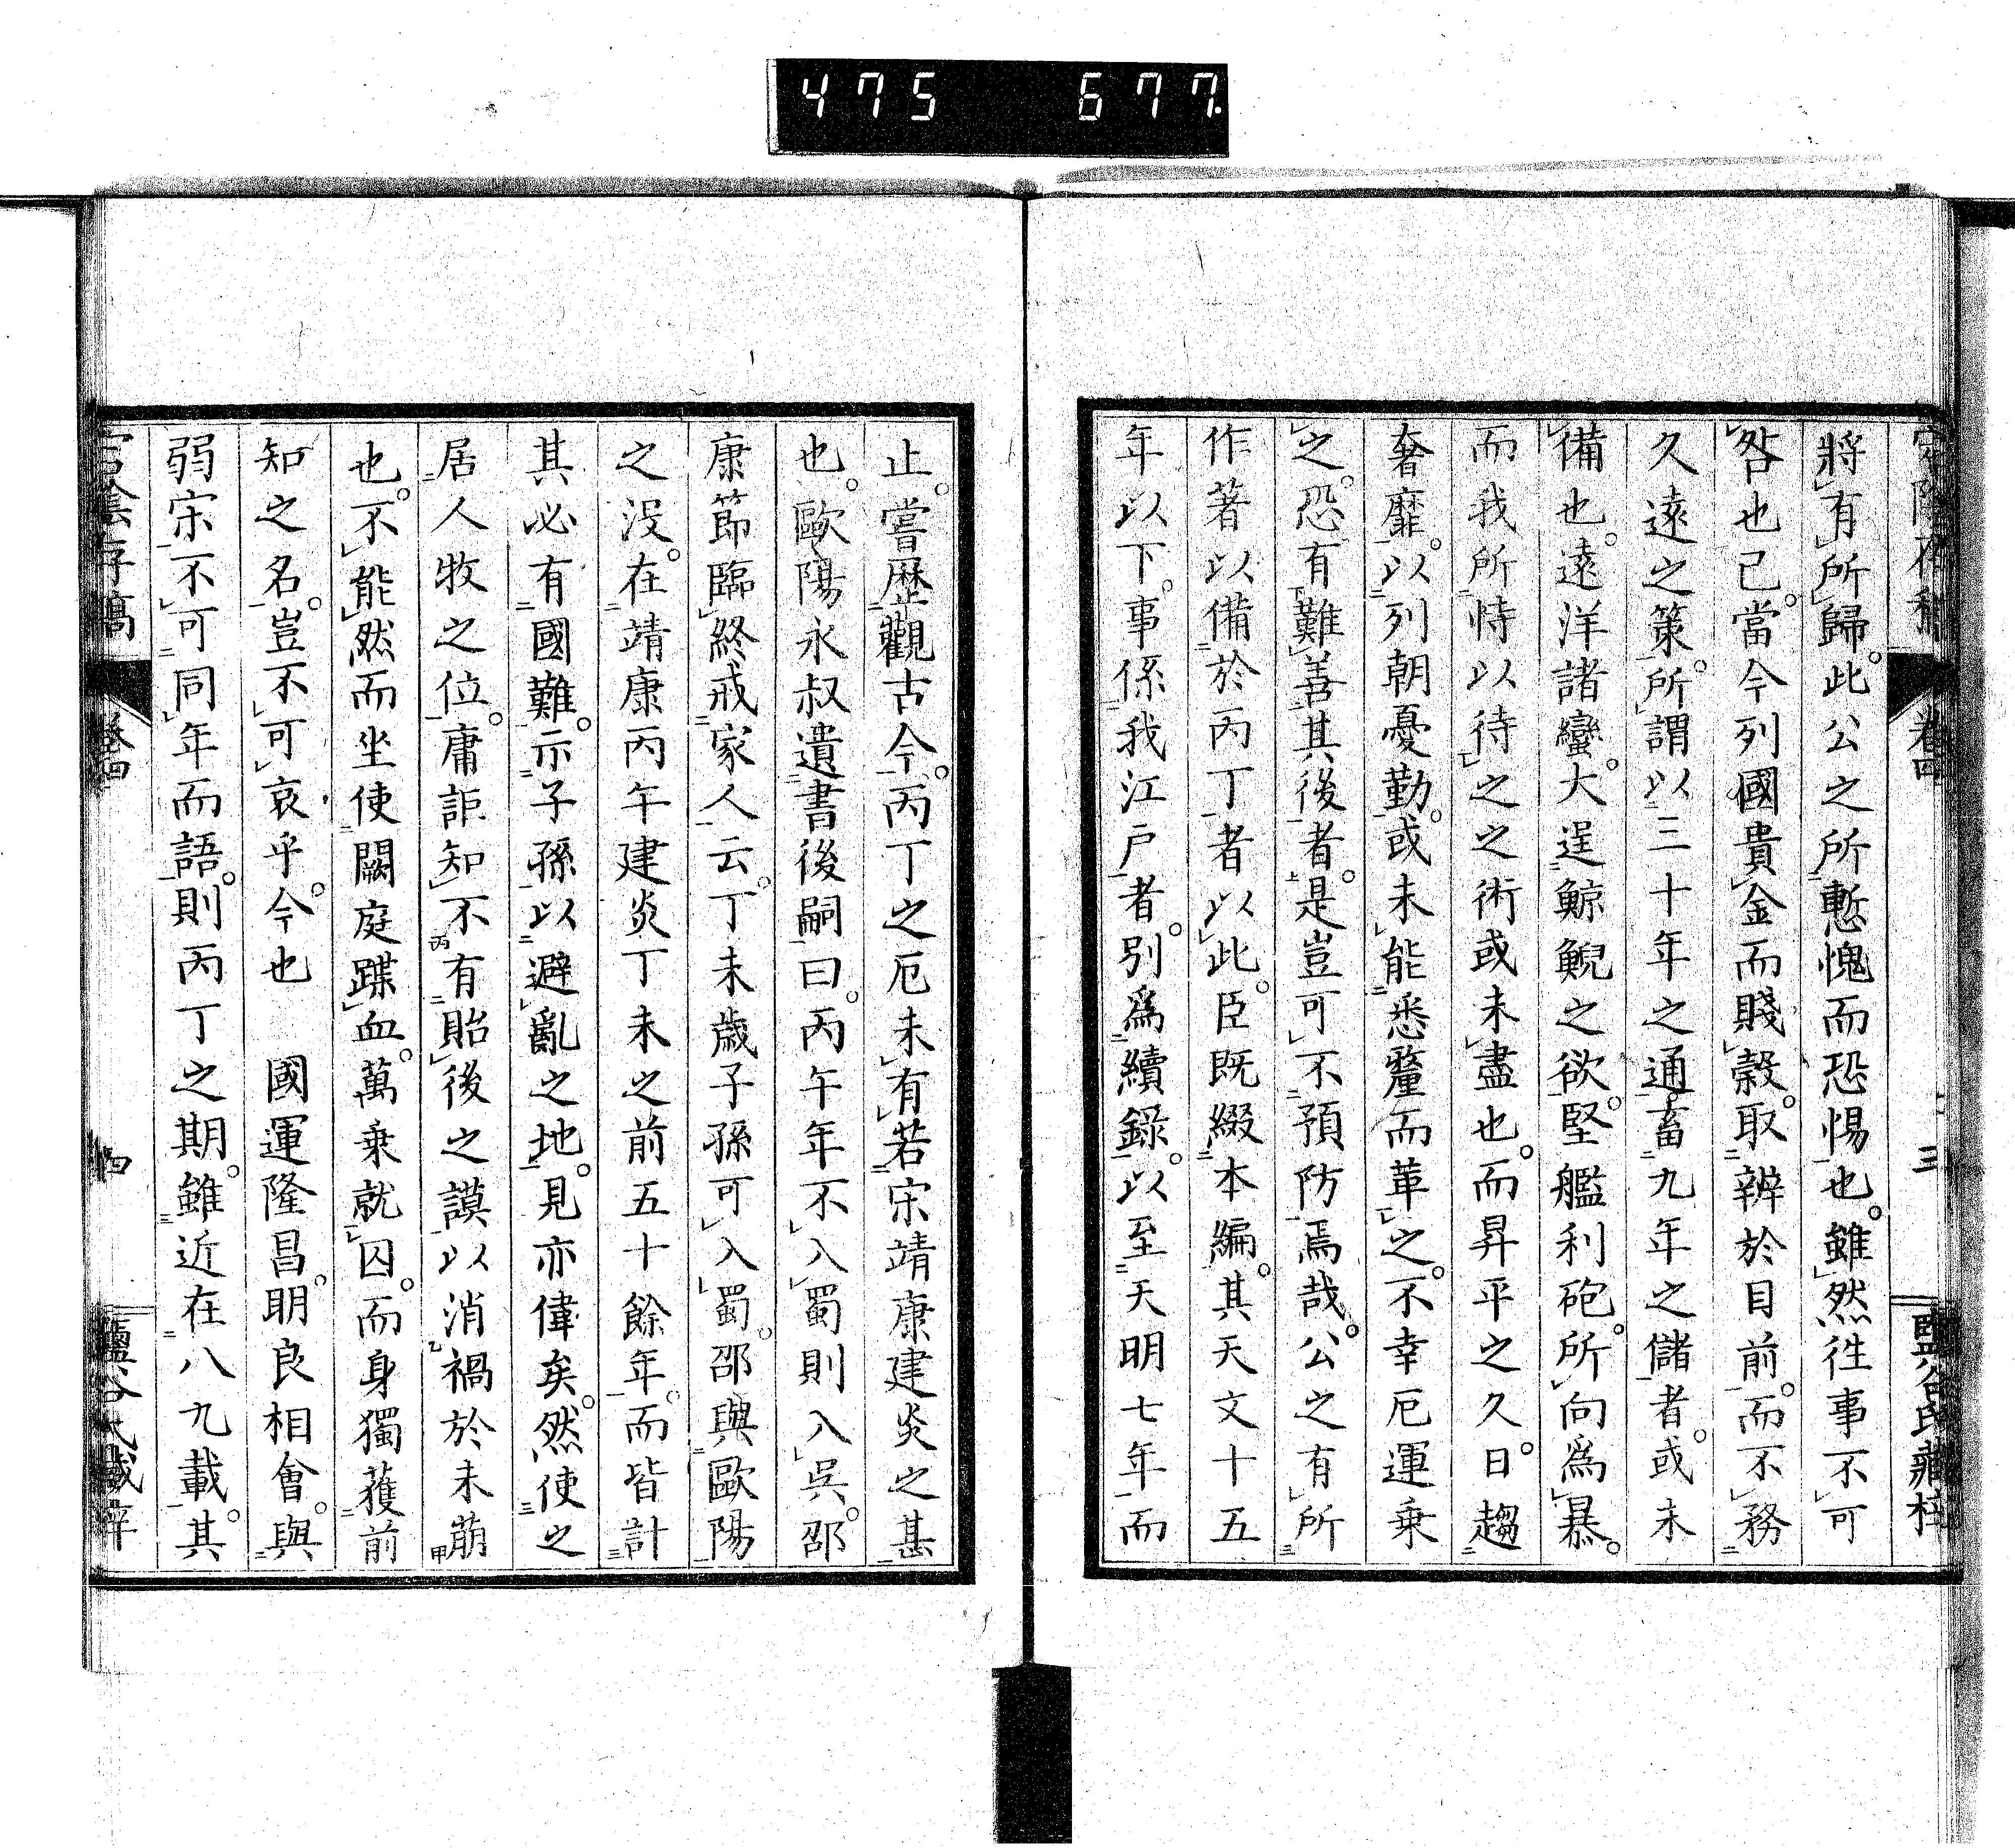 475 677.
卷四 三 鹽谷氏藏梓
將有所歸。此公之所慙愧而恐惕也。雖然徃事不可
咎也已。當今列國貴金而賤穀。取辨於目前。而不務
久遠之策。所謂以三十年之通。畜九年之儲者。或未
備也。遠洋諸蠻。大逞鯨鯢之欲。堅艦利砲。所向爲暴。
而我所恃以待之之術或未盡也。而昇平之久。日趨
奢靡。以列朝憂勤。或未能悉釐而革之。不幸厄運乘
之。恐有難善其後者。是豈可不預防焉哉。公之有所
作著以備於丙丁者以此。臣既綴本編。其天文十五
年以下。事係我江戸者。別爲續錄。以至天明七年而
止。嘗歷觀古今。丙丁之厄未有若宋靖康建炎之甚
也。歐陽永叔遺書後嗣曰。丙午年不入蜀則入吳。邵
康節臨終戒家人云。丁未歲子孫可入蜀。邵與歐陽
之沒。在靖康丙午建炎丁未之前五十餘年。而皆計
其必有國難。示子孫以避亂之地。見亦偉矣。然使之
居人牧之位。庸詎知不有貽後之謨以消禍於未萠
也。不能然而坐使闕庭蹀血。萬乘就囚。而身獨獲前
知之名。豈不可哀乎。今也　國運隆昌。明良相會。與
弱宋不可同年而語。則丙丁之期。雖近在八九載。其
宕陰存稿 卷四 四 鹽谷氏藏梓